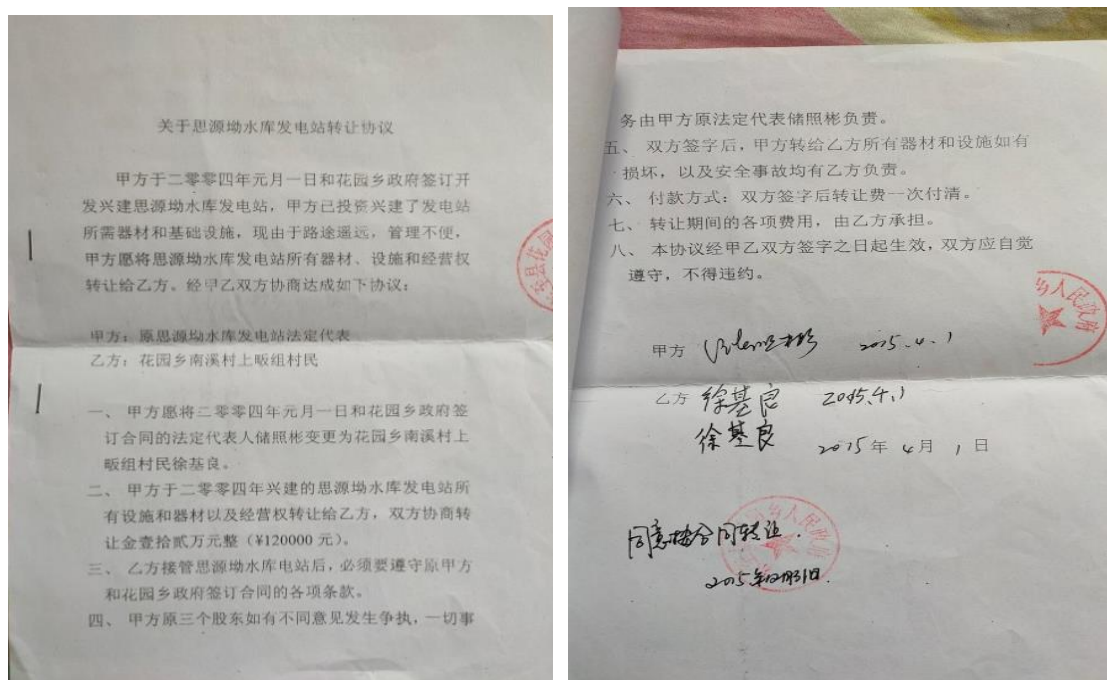 关于思源坳水库发电站转让协议
甲方于二零零四年元月一日和花园乡政府签订开
发兴建思源坳水库发电站，甲方已投资兴建了发电站
所需器材和基础设施，现由于路途遥远，管理不便，
甲方愿将思源坳水库发电站所有器材、设施和经营权
转让给乙方。经甲乙双方协商达成如下协议：
甲方：原思源坳水库发电站法定代表
乙方：花园乡南溪村上畈组村民
一、甲方愿将二零零四年元月一日和花园乡政府签
订合同的法定代表人储照彬变更为花园乡南溪村上
畈组村民徐基良。
二、甲方于二零零四年兴建的思源坳水库发电站所
有设施和器材以及经营权转让给乙方，双方协商转
让金壹拾贰万元整（¥120000元）。
三、乙方接管思源坳水库电站后，必须要遵守原甲方
和花园乡政府签订合同的各项条款。
四、甲方原三个股东如有不同意见发生争执，一切事
县花
务由甲方原法定代表储照彬负责。
五、双方签字后，甲方转给乙方所有器材和设施如有
损坏，以及安全事故均有乙方负责。
六、付款方式：双方签字后转让费一次付清。
七、转让期间的各项费用，由乙方承担。
八、本协议经甲乙双方签字之日起生效，双方应自觉
遵守，不得违约。
乡人民政府
甲方 2015.4.1
乙方 徐基良 2015.4.1
徐基良
2015年4月1日
乡人民政府
同意按合同转让.
2015年12月31日.